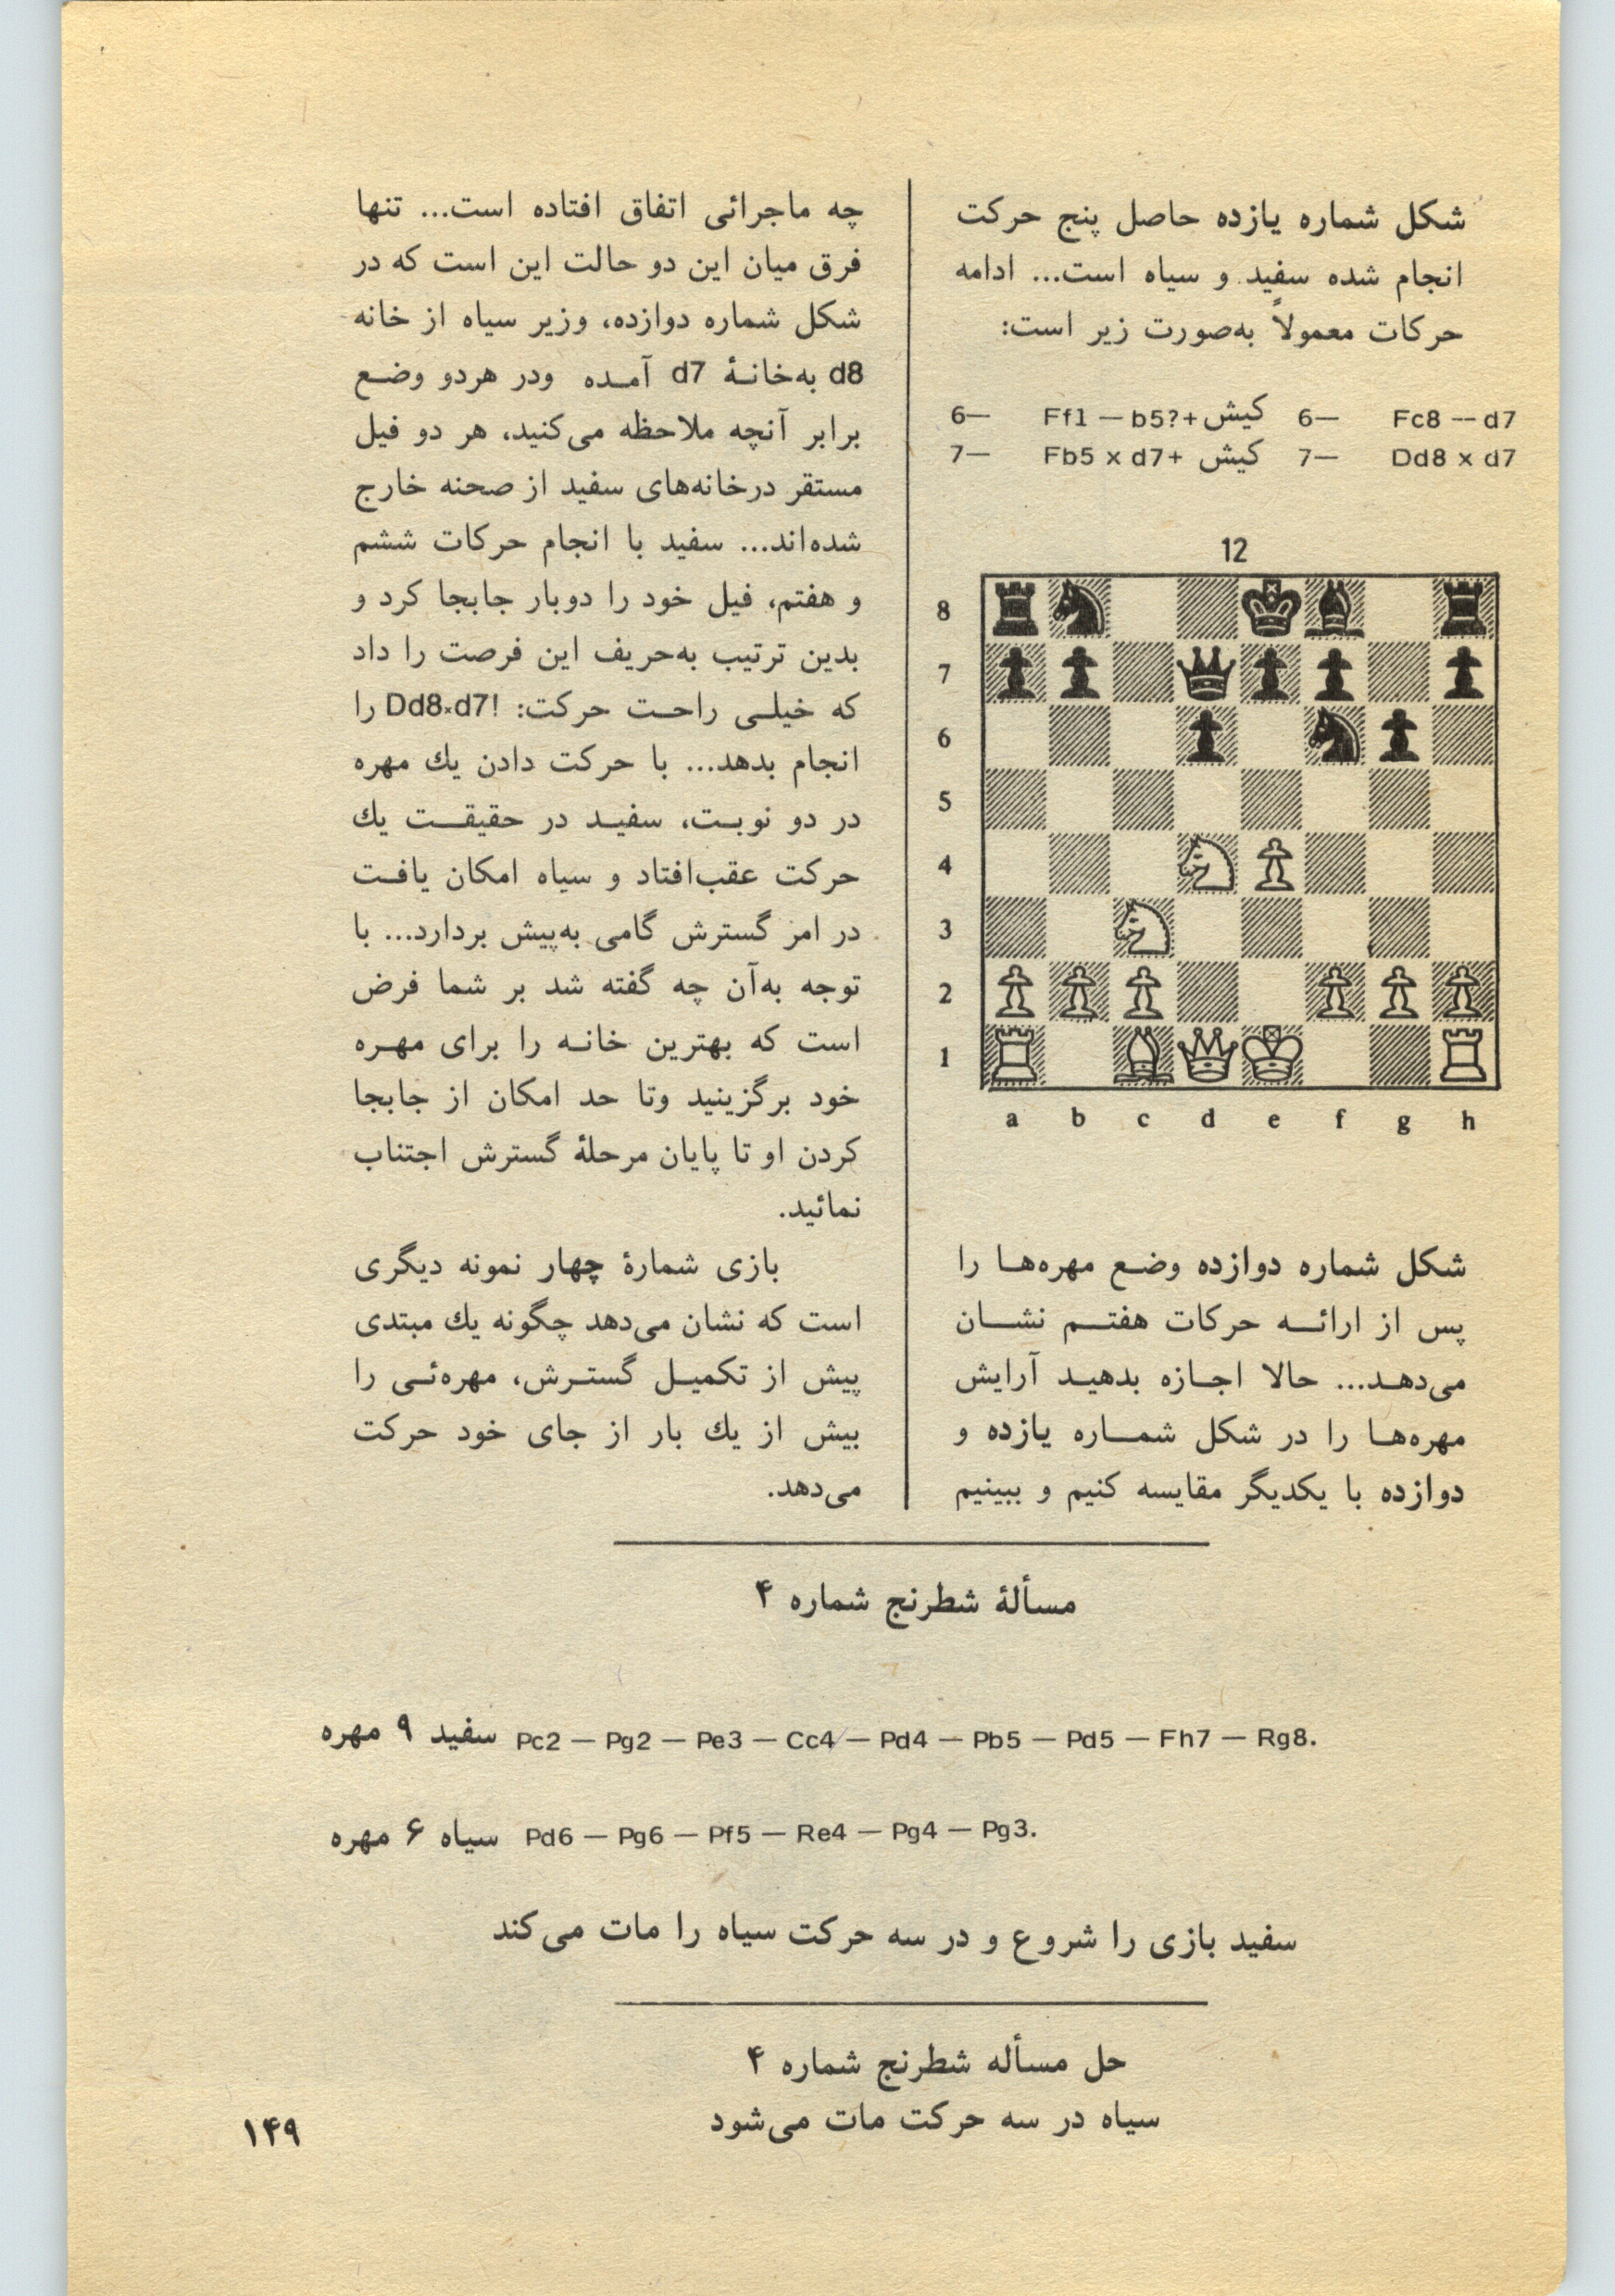 شکل شماره یازده حاصل پنج حرکت
انجام شده سفید و سیاه است... ادامه
حرکات معمولاً به‌صورت زیر است:
6— Ff1 — b5?+ کیش 6— Fc8 — d7
7— Fb5 x d7+ کیش 7— Dd8 x d7
12
8
7
6
5
4
3
2
1
a b c d e f g h
شکل شماره دوازده وضع مهره‌ها را
پس از ارائه حرکات هفتم نشان
می‌دهد... حالا اجازه بدهید آرایش
مهره‌ها را در شکل شماره یازده و
دوازده با یکدیگر مقایسه کنیم و ببینیم
چه ماجرائی اتفاق افتاده است... تنها
فرق میان این دو حالت این است که در
شکل شماره دوازده، وزیر سیاه از خانه
d8 به‌خانهٔ d7 آمده ودر هردو وضع
برابر آنچه ملاحظه می‌کنید، هر دو فیل
مستقر درخانه‌های سفید از صحنه خارج
شده‌اند... سفید با انجام حرکات ششم
و هفتم، فیل خود را دوبار جابجا کرد و
بدین ترتیب به‌حریف این فرصت را داد
که خیلی راحت حرکت: !Dd8×d7 را
انجام بدهد... با حرکت دادن یك مهره
در دو نوبت، سفید در حقیقت یك
حرکت عقب‌افتاد و سیاه امکان یافت
در امر گسترش گامی به‌پیش بردارد... با
توجه به‌آن چه گفته شد بر شما فرض
است که بهترین خانه را برای مهره
خود برگزینید وتا حد امکان از جابجا
کردن او تا پایان مرحلهٔ گسترش اجتناب
نمائید.
بازی شمارهٔ چهار نمونه دیگری
است که نشان می‌دهد چگونه یك مبتدی
پیش از تکمیل گسترش، مهره‌ئی را
بیش از یك بار از جای خود حرکت
می‌دهد.
مسألهٔ شطرنج شماره ۴
سفید ۹ مهره Pc2 — Pg2 — Pe3 — Cc4 — Pd4 — Pb5 — Pd5 — Fh7 — Rg8.
سیاه ۶ مهره Pd6 — Pg6 — Pf5 — Re4 — Pg4 — Pg3.
سفید بازی را شروع و در سه حرکت سیاه را مات می‌کند
حل مسأله شطرنج شماره ۴
سیاه در سه حرکت مات می‌شود
۱۴۹